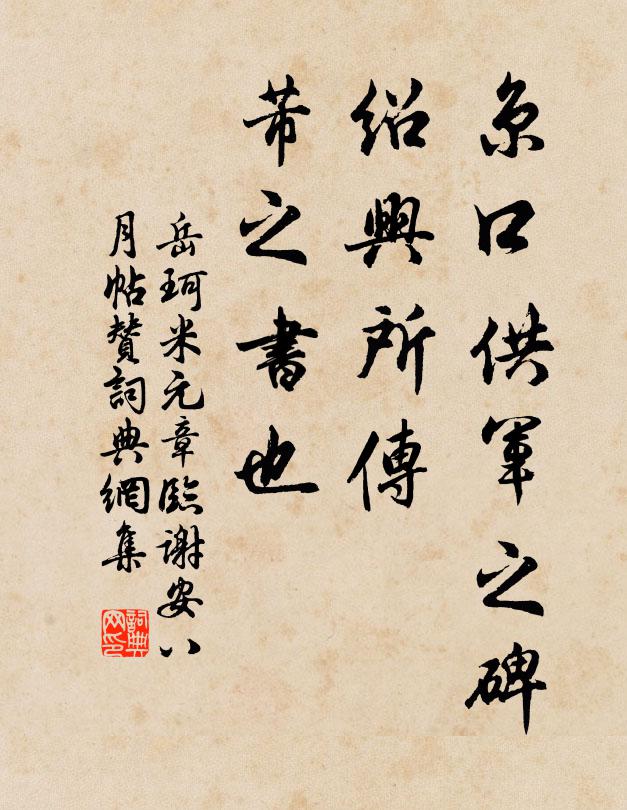 京口供軍之碑
紹興所傳
芾之書也
岳珂米元章臨謝安八
月帖贊詞典網集
詞典网印